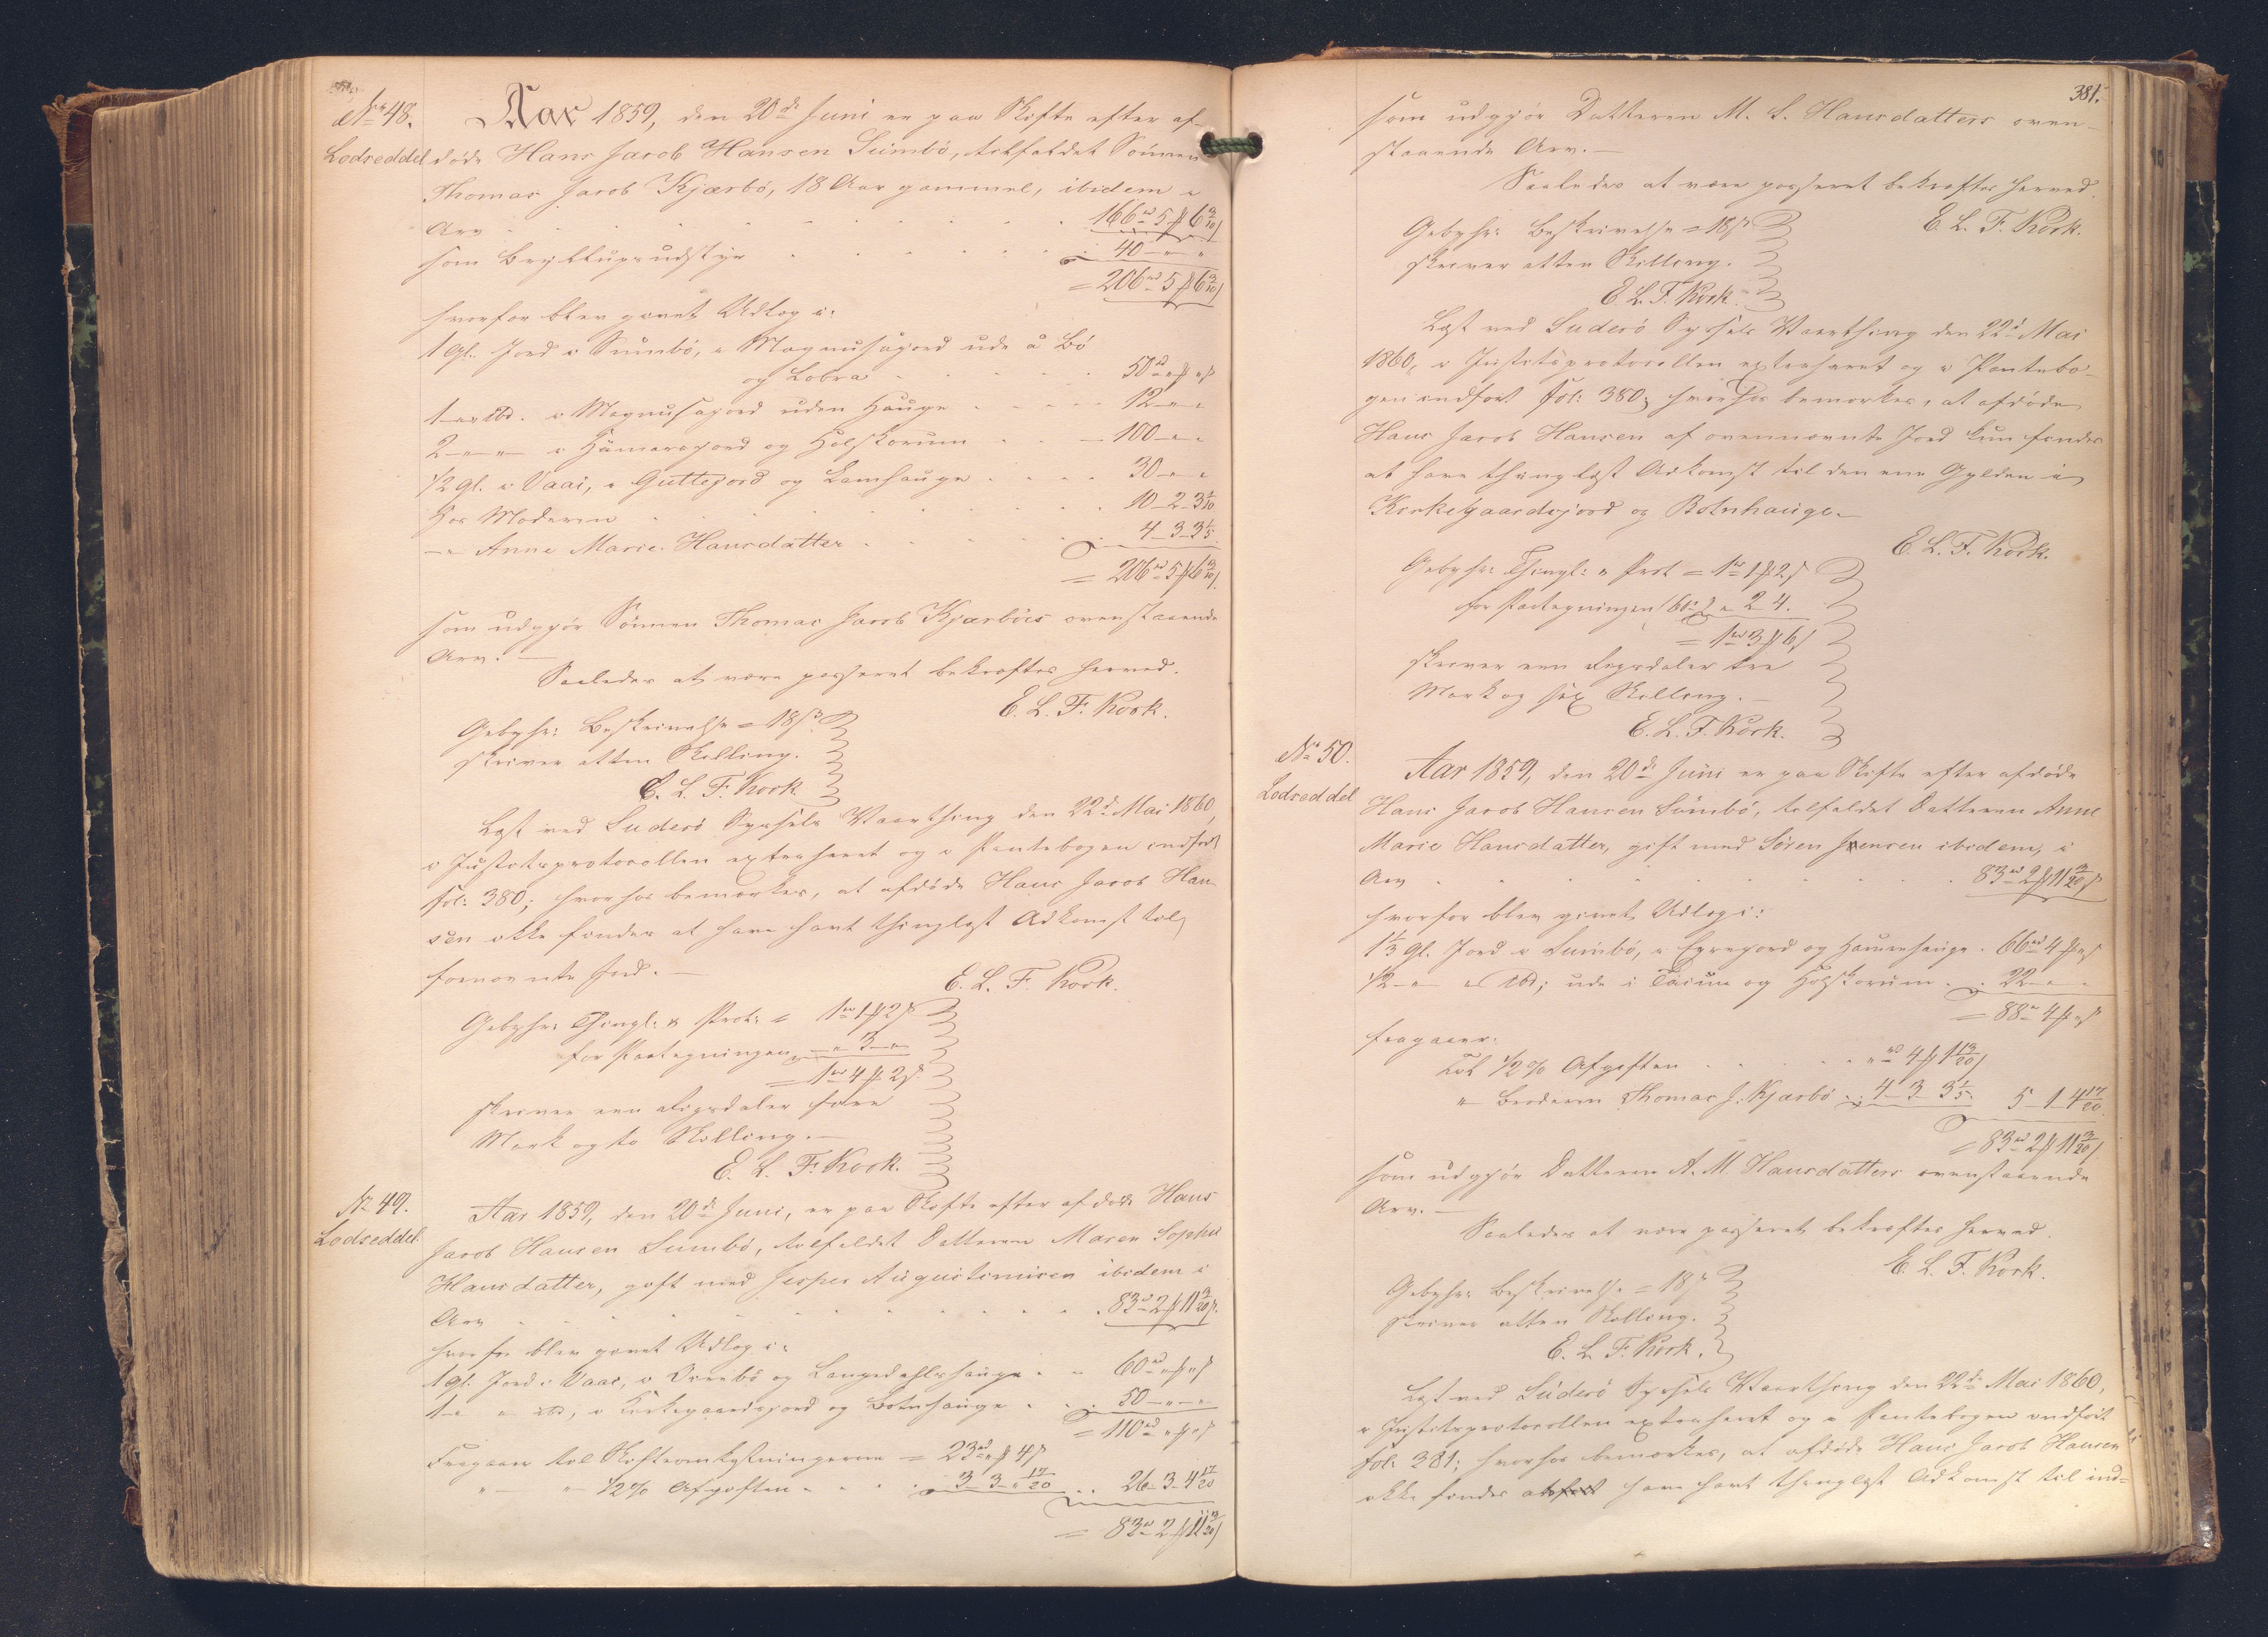 No 48.
Lodseddel
Aar 1859, den 20de Juni er paa Skifte efter af-
døde Hans Jacob Hansen Sumbø, tilfaldet Sønnen
Thomas Jacob Kjærbø, 18 Aar gammel, ibidem i
Arv 166rd 5# 6 3/10ß
som Bryllupsudstyr 40 - " - "
= 206rd 5# 6 3/10ß
hvorfor blev givet Udlæg i:
1 Gl. Jord i Sumbø, i Magnusajord ude å Bø
og Lobra 50rd " # " ß
1 - " ibd. i Magnusajord uden Hauge 12 - " - "
2 - " - " i Hamarsjord og Holskorum 100 - " - "
1/2 Gl. i Vaai, i Guttejord og Lamhauge 30 - " - "
Hos Moderen 10 - 2 - 3 1/10
- " Anne Marie Hansdatter 4 - 3 - 3 1/5
= 206rd 5# 6 3/10ß.
som udgjør Sønnen Thomas Jacob Kjærbøs ovenstaaende
Arv. —
Saaledes at være passeret bekræftes herved.
E. L. F. Kock.
Gebyhr: Beskrivelse = 18ß
skriver atten Skilling.
E. L. F. Kock
Læst ved Suderø Syssels Vaarthing den 22de Mai 1860,
i Justitsprotocollen extraheret og i Pantebogen indført
fol: 380; hvorhos bemærkes, at afdøde Hans Jacob Han-
sen ikke findes at have havt thinglæst Adkomst til
fornævnte Jord. —
E. L. F. Kock.
Gebyhr: Thingl: & Prot: = 1rd 1# 2ß
for Paategningen - " 3 - "
= 1rd 4# 2ß.
skriver een Rigsdaler fire
Mark og to Skilling. —
E. L. F. Kock.
No 49.
Lodseddel
Aar 1859, den 20de Juni, er paa Skifte efter afdøde Hans
Jacob Hansen Sumbø, tilfaldet Datteren Maren Sophie
Hansdatter, gift med Jesper Augustinusen ibidem i
Arv 83rd 2# 11 3/20ß.
hvorfor blev givet Udlæg i:
1 Gl. Jord i Vaai, i og Langedahlshauge 60rd " # " ß
1 - " " ibd, i Kirkegaardsjord og Botnhauge 50 - " - "
= 110rd " # " ß
Fragaaer til Skifteomkostningerne = 23rd " # 4ß
" — " 1/2 % Afgiften 3 - 3 - " 17/20 26 - 3 - 4 17/20
= 83rd 2# 11 3/20ß
381.
som udgjør Datteren M. S. Hansdatters oven-
staaende Arv. —
Saaledes at være passeret bekræftes herved.
E. L. F. Kock.
Gebyhr: Beskrivelse = 18ß
skriver atten Skilling.
E. L. F. Kock.
Læst ved Suderø Syssels Vaarthing den 22de Mai
1860, i Justitsprotocollen extraheret og i Pantebo-
gen indført fol: 380; hvorhos bemærkes, at afdøde
Hans Jacob Hansen af ovennævnte Jord kun findes
at have thinglæst Adkomst til den ene Gylden i
Kirkegaardsjord og Botnhauge. —
E. L. F. Kock.
Gebyhr: Thingl: & Prot = 1rd 1# 2ß
for Paategningen " 2 - 4.
= 1rd 3# 6ß
skriver een Rigsdaler tre
Mark og sex Skilling. —
E. L. F. Kock.
No 50.
Lodseddel
Aar 1859, den 20de Juni er paa Skifte efter afdøde
Hans Jacob Hansen Sumbø, tilfaldet Datteren Anne
Marie Hansdatter, gift med Søren Jensen ibidem, i
Arv 83rd 2# 11 3/20ß
hvorfor blev givet Udlæg i:
1 1/3 Gl. Jord i Sumbø, i Eyrejord og Hamrehauge 66rd 4# " ß
1/2 - " i ibd; ude i og Holskorum 22 - " - "
= 88rd 4# " ß
fragaaer:
til 1/2 % Afgiften "rd 4# 1 13/20ß
" Broderen Thomas J. Kjærbø 4 - 3 - 3 1/5 5 - 1 - 4 17/20
= 83rd 2# 11 3/20ß
som udgjør Datteren A. M. Hansdatters ovenstaaende
Arv. —
Saaledes at være passeret bekræftes herved.
E. L. F. Kock.
Gebyhr: Beskrivelse = 18ß
skriver atten Skilling.
E. L. F. Kock.
Læst ved Suderø Syssels Vaarthing den 22de Mai 1860,
i Justitsprotocollen extraheret og i Pantebogen indført
fol: 381; hvorhos bemærkes, at afdøde Hans Jacob Hansen
ikke findes at have havt thinglæst Adkomst til ind-